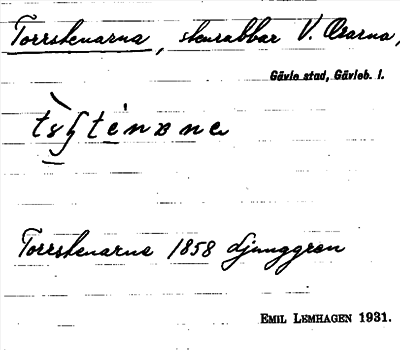 Torrstenarna, stenrabbar V. Orarna,
Gävle stad, Gävleb. l.
Torrstenarne 1858 Ljunggren
EMIL LEMHAGEN 1931.